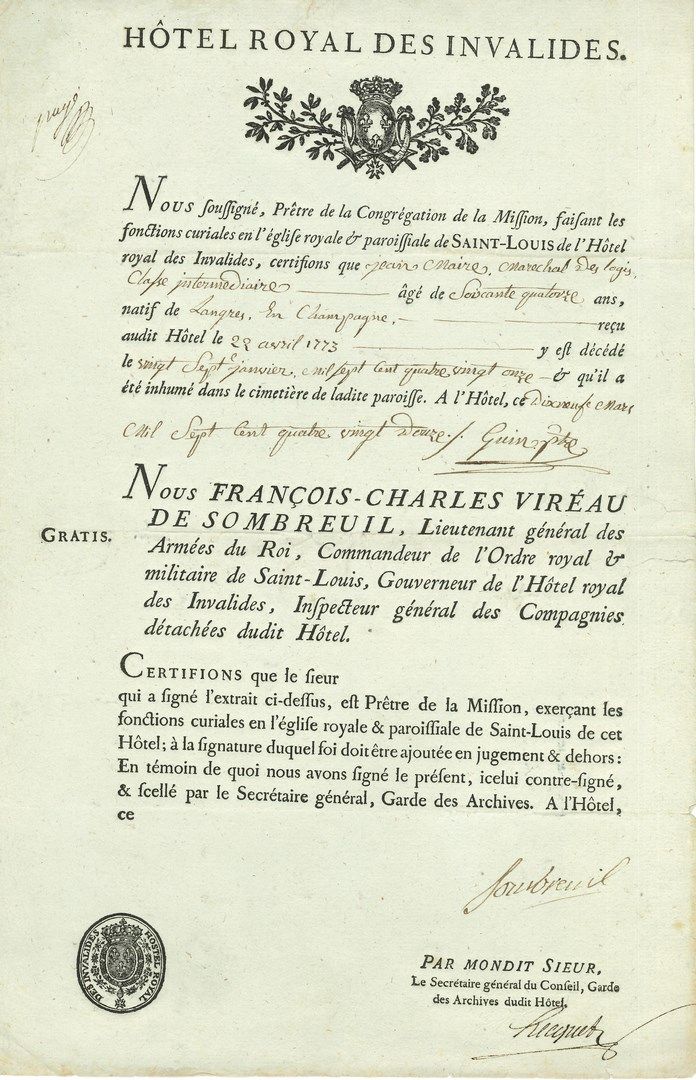 HÔTEL ROYAL DES INVALIDES.
Nous ſouſſigné, Prêtre de la Congrégation de la Miſſion, faiſant les
fonctions curiales en l'égliſe royale & paroiſſiale de SAINT-LOUIS de l'Hôtel
royal des Invalides, certifions que jean Maire, Marechal des logis,
Claſse jntermediaire âgé de Soixante quatorze ans,
natif de Langres, En Champagne. reçu
audit Hôtel le 22 avril 1773 y eſt décédé
le vingt Sept janvier, Mil sept Cent quatre vingt onze & qu'il a
été inhumé dans le cimetière de ladite paroiſſe. A l'Hôtel, ce Dixneuf Mars
Mil Sept Cent quatre vingt Douze ./. Guin ptre
Nous FRANÇOIS-CHARLES VIRÉAU
DE SOMBREUIL, Lieutenant général des
GRATIS.
Armées du Roi, Commandeur de l'Ordre royal &
militaire de Saint-Louis, Gouverneur de l'Hôtel royal
des Invalides, Inſpecteur général des Compagnies
détachées dudit Hôtel.
CERTIFIONS que le ſieur
qui a ſigné l'extrait ci-deſſus, eſt Prêtre de la Miſſion, exerçant les
fonctions curiales en l'égliſe royale & paroiſſiale de Saint-Louis de cet
Hôtel; à la ſignature duquel foi doit être ajoutée en jugement & dehors:
En témoin de quoi nous avons ſigné le préſent, icelui contre-ſigné,
& ſcellé par le Secrétaire général, Garde des Archives. A l'Hôtel,
ce
Sombreuil
HOSTEL ROYAL DES INVALIDES
PAR MONDIT SIEUR,
Le Secrétaire général du Conſeil, Garde
des Archives dudit Hôtel.